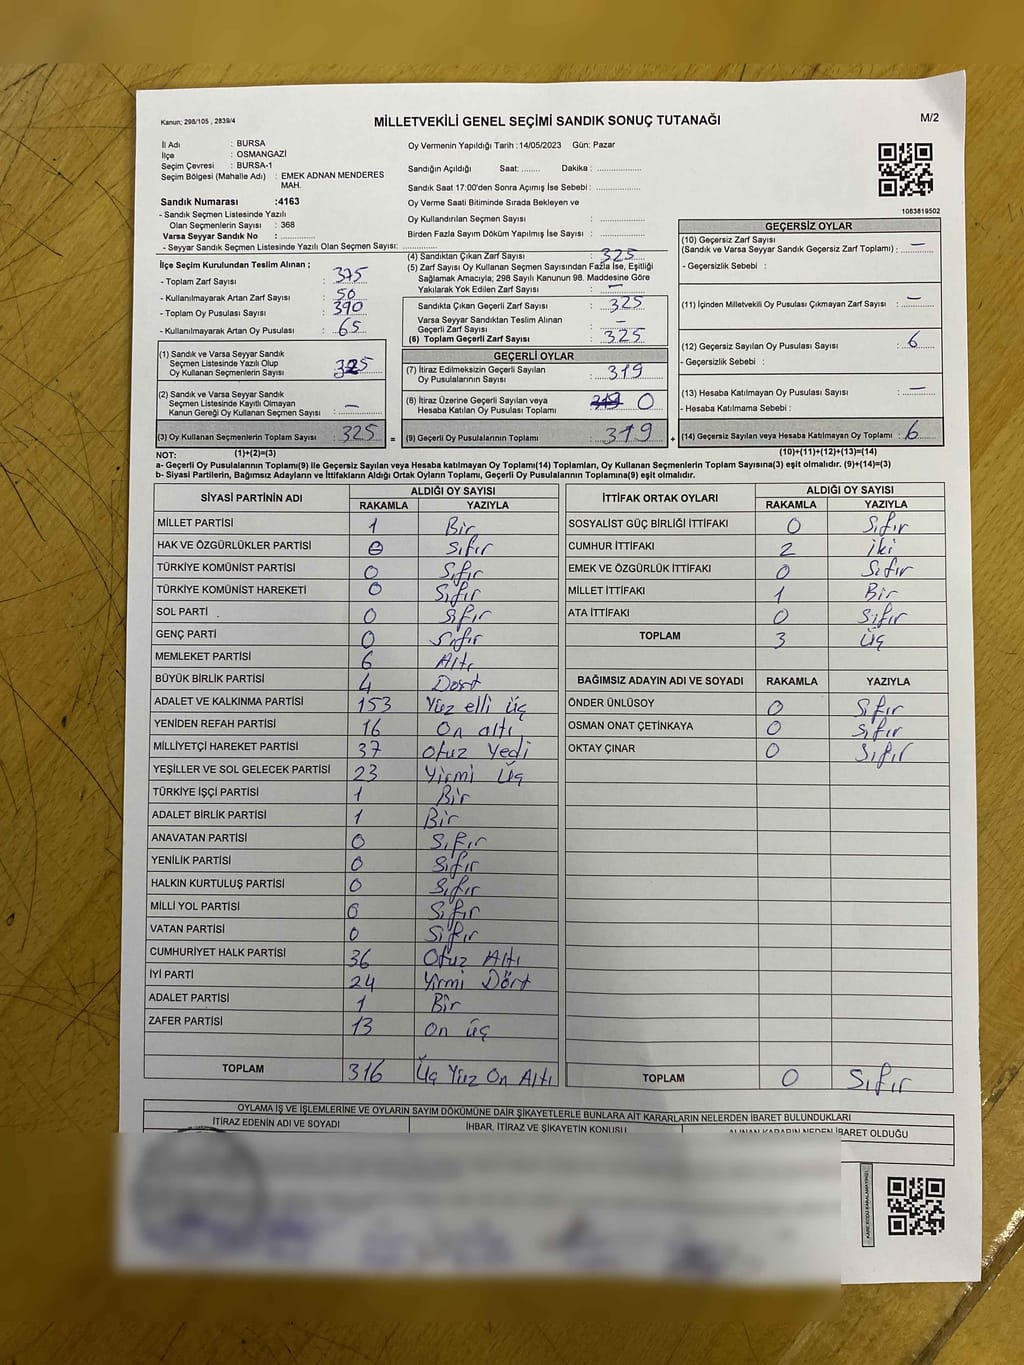 Kanun; 298/105 , 2839/4
MİLLETVEKİLİ GENEL SEÇİMİ SANDIK SONUÇ TUTANAĞI
M/2
İl Adı : BURSA
İlçe : OSMANGAZİ
Seçim Çevresi : BURSA-1
Seçim Bölgesi (Mahalle Adı) : EMEK ADNAN MENDERES
MAH.
Sandık Numarası :4163
- Sandık Seçmen Listesinde Yazılı
Olan Seçmenlerin Sayısı : 368
Varsa Seyyar Sandık No : ............
- Seyyar Sandık Seçmen Listesinde Yazılı Olan Seçmen Sayısı: ............
Oy Vermenin Yapıldığı Tarih :14/05/2023 Gün: Pazar
Sandığın Açıldığı Saat: ........ Dakika : ................
Sandık Saat 17:00'den Sonra Açımış İse Sebebi : ................
Oy Verme Saati Bitiminde Sırada Bekleyen ve
Oy Kullandırılan Seçmen Sayısı : ................
Birden Fazla Sayım Döküm Yapılmış İse Sayısı : ................
1083819502
İlçe Seçim Kurulundan Teslim Alınan ;
- Toplam Zarf Sayısı : 375
- Kullanılmayarak Artan Zarf Sayısı : 50
- Toplam Oy Pusulası Sayısı : 390
- Kullanılmayarak Artan Oy Pusulası : 65
(1) Sandık ve Varsa Seyyar Sandık
Seçmen Listesinde Yazılı Olup
Oy Kullanan Seçmenlerin Sayısı : 325
(2) Sandık ve Varsa Seyyar Sandık
Seçmen Listesinde Kayıtlı Olmayan
Kanun Gereği Oy Kullanan Seçmen Sayısı : –
(3) Oy Kullanan Seçmenlerin Toplam Sayısı : 325 =
(1)+(2)=(3)
(4) Sandıktan Çıkan Zarf Sayısı : 325
(5) Zarf Sayısı Oy Kullanan Seçmen Sayısından Fazla İse, Eşitliği
Sağlamak Amacıyla; 298 Sayılı Kanunun 98. Maddesine Göre
Yakılarak Yok Edilen Zarf Sayısı : –
Sandıkta Çıkan Geçerli Zarf Sayısı : 325
Varsa Seyyar Sandıktan Teslim Alınan
Geçerli Zarf Sayısı : –
(6) Toplam Geçerli Zarf Sayısı : 325
GEÇERLİ OYLAR
(7) İtiraz Edilmeksizin Geçerli Sayılan
Oy Pusulalarının Sayısı : 319
(8) İtiraz Üzerine Geçerli Sayılan veya
Hesaba Katılan Oy Pusulası Toplamı : 319 0
(9) Geçerli Oy Pusulalarının Toplamı : 319 +
GEÇERSİZ OYLAR
(10) Geçersiz Zarf Sayısı
(Sandık ve Varsa Seyyar Sandık Geçersiz Zarf Toplamı) : –
- Geçersizlik Sebebi :
(11) İçinden Milletvekili Oy Pusulası Çıkmayan Zarf Sayısı : –
(12) Geçersiz Sayılan Oy Pusulası Sayısı : 6
- Geçersizlik Sebebi :
(13) Hesaba Katılmayan Oy Pusulası Sayısı : –
- Hesaba Katılmama Sebebi :
(14) Geçersiz Sayılan veya Hesaba Katılmayan Oy Toplamı : 6
(10)+(11)+(12)+(13)=(14)
NOT:
a- Geçerli Oy Pusulalarının Toplamı(9) ile Geçersiz Sayılan veya Hesaba katılmayan Oy Toplamı(14) Toplamları, Oy Kullanan Seçmenlerin Toplam Sayısına(3) eşit olmalıdır. (9)+(14)=(3)
b- Siyasi Partilerin, Bağımsız Adayların ve İttifakların Aldığı Ortak Oyların Toplamı, Geçerli Oy Pusulalarının Toplamına(9) eşit olmalıdır.
SİYASİ PARTİNİN ADI ALDIĞI OY SAYISI
RAKAMLA YAZIYLA
MİLLET PARTİSİ 1 Bir
HAK VE ÖZGÜRLÜKLER PARTİSİ 0 Sıfır
TÜRKİYE KOMÜNİST PARTİSİ 0 Sıfır
TÜRKİYE KOMÜNİST HAREKETİ 0 Sıfır
SOL PARTİ 0 Sıfır
GENÇ PARTİ 0 Sıfır
MEMLEKET PARTİSİ 6 Altı
BÜYÜK BİRLİK PARTİSİ 4 Dört
ADALET VE KALKINMA PARTİSİ 153 Yüz elli üç
YENİDEN REFAH PARTİSİ 16 On altı
MİLLİYETÇİ HAREKET PARTİSİ 37 Otuz Yedi
YEŞİLLER VE SOL GELECEK PARTİSİ 23 Yirmi Üç
TÜRKİYE İŞÇİ PARTİSİ 1 Bir
ADALET BİRLİK PARTİSİ 1 Bir
ANAVATAN PARTİSİ 0 Sıfır
YENİLİK PARTİSİ 0 Sıfır
HALKIN KURTULUŞ PARTİSİ 0 Sıfır
MİLLİ YOL PARTİSİ 0 Sıfır
VATAN PARTİSİ 0 Sıfır
CUMHURİYET HALK PARTİSİ 36 Otuz Altı
İYİ PARTİ 24 Yirmi Dört
ADALET PARTİSİ 1 Bir
ZAFER PARTİSİ 13 On üç
TOPLAM 316 Üç Yüz On Altı
İTTİFAK ORTAK OYLARI ALDIĞI OY SAYISI
RAKAMLA YAZIYLA
SOSYALİST GÜÇ BİRLİĞİ İTTİFAKI 0 Sıfır
CUMHUR İTTİFAKI 2 iki
EMEK VE ÖZGÜRLÜK İTTİFAKI 0 Sıfır
MİLLET İTTİFAKI 1 Bir
ATA İTTİFAKI 0 Sıfır
TOPLAM 3 Üç
BAĞIMSIZ ADAYIN ADI VE SOYADI RAKAMLA YAZIYLA
ÖNDER ÜNLÜSOY 0 Sıfır
OSMAN ONAT ÇETİNKAYA 0 Sıfır
OKTAY ÇINAR 0 Sıfır
TOPLAM 0 Sıfır
OYLAMA İŞ VE İŞLEMLERİNE VE OYLARIN SAYIM DÖKÜMÜNE DAİR ŞİKAYETLERLE BUNLARA AİT KARARLARIN NELERDEN İBARET BULUNDUKLARI
İTİRAZ EDENİN ADI VE SOYADI İHBAR, İTİRAZ VE ŞİKAYETİN KONUSU ALINAN KARARIN NEDEN İBARET OLDUĞU